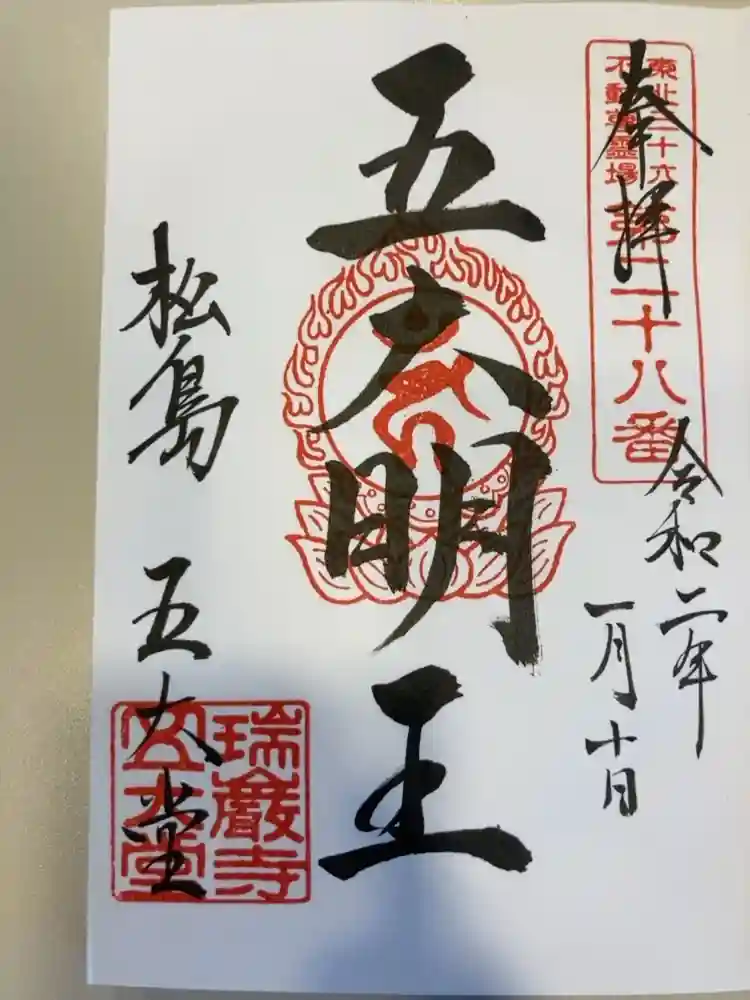 奉拝
東北三十六
不動尊霊場
第二十八番
令和二年
一月十日
五大明王
松島 五大堂
瑞巌寺
五大堂